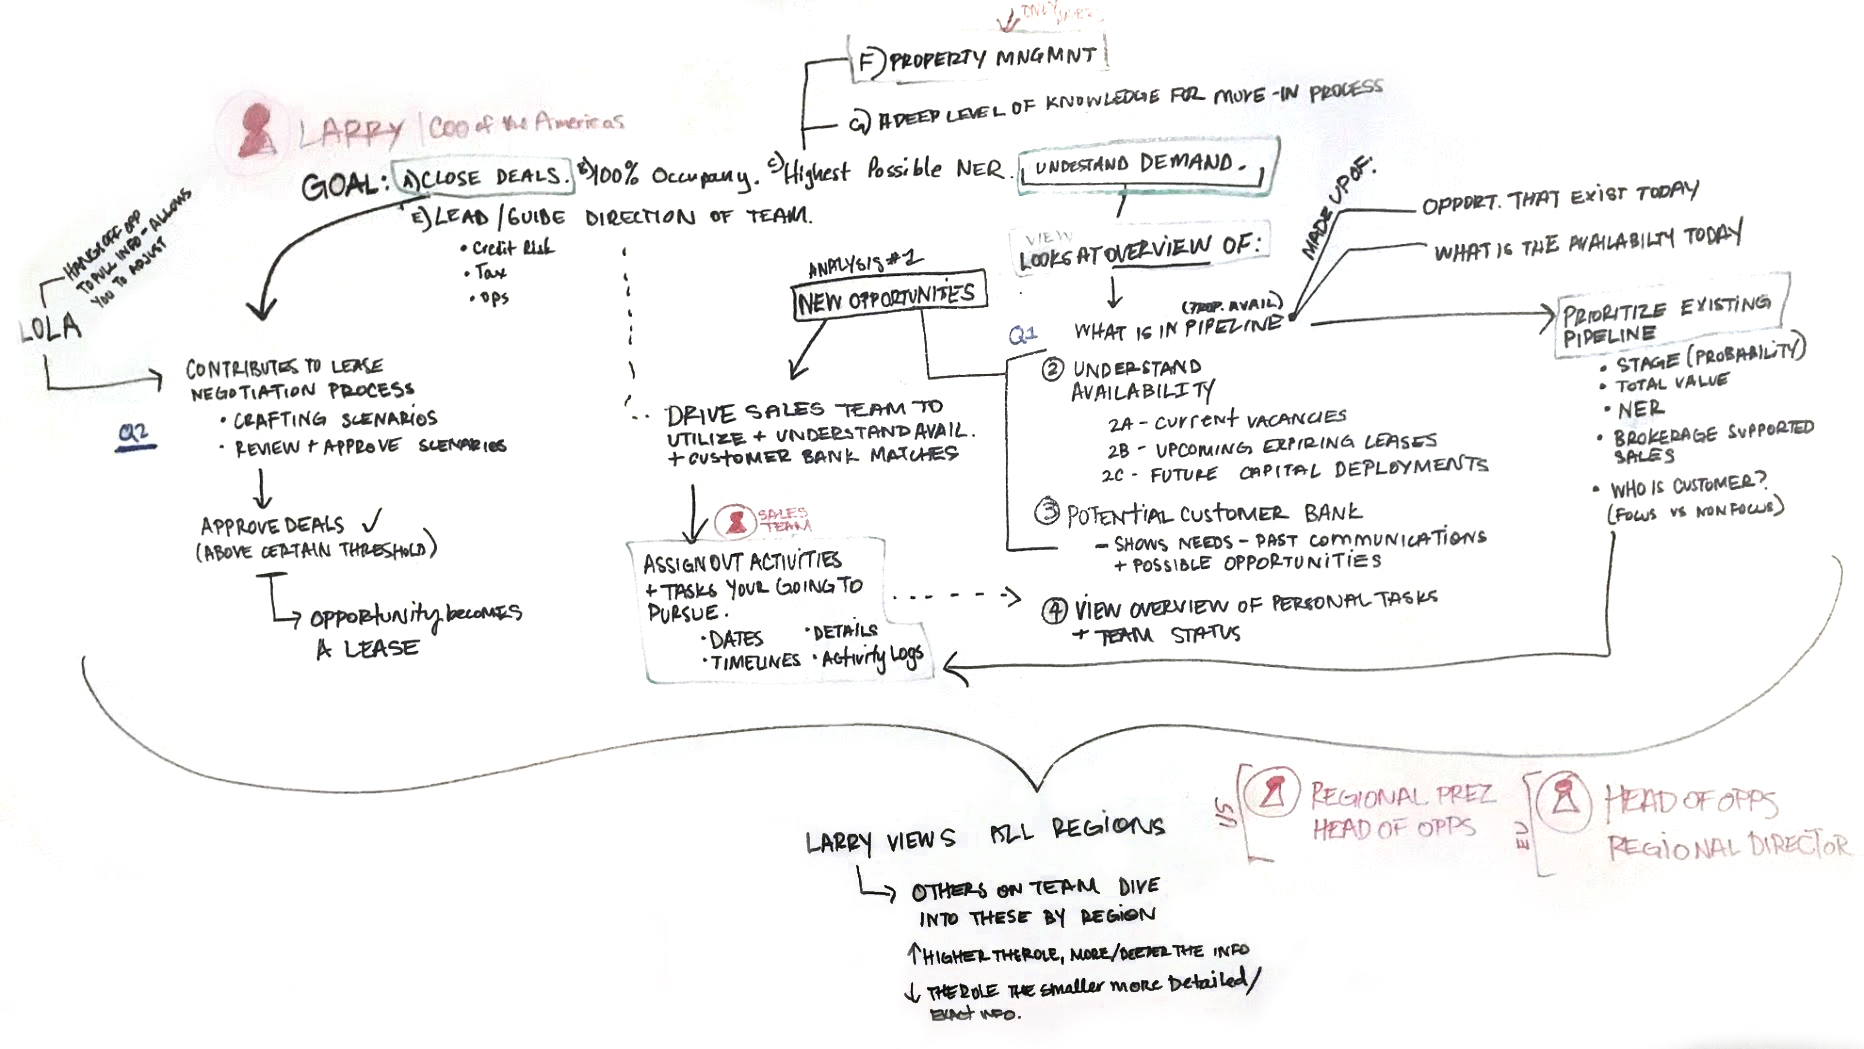 F) PROPERTY MNGMNT
G) A DEEP LEVEL OF KNOWLEDGE FOR MOVE-IN PROCESS
LARRY | COO of the Americas
GOAL: A) CLOSE DEALS. B) 100% Occupany. C) Highest Possible NER. UNDESTAND DEMAND.
E) LEAD / GUIDE DIRECTION OF TEAM.
• Credit Risk
• Tax
• OPS
HANGS OFF OPP
TO PULL INFO - ALLOWS
YOU TO ADJUST
LOLA
Q2
CONTRIBUTES TO LEASE
NEGOTIATION PROCESS
• CRAFTING SCENARIOS
• REVIEW + APPROVE SCENARIOS
APPROVE DEALS ✓
(ABOVE CERTAIN THRESHOLD)
OPPORTUNITY becomes
A LEASE
ANALYSIS #1
NEW OPPORTUNITES
DRIVE SALES TEAM TO
UTILIZE + UNDERSTAND AVAIL.
+ CUSTOMER BANK MATCHES
SALES
TEAM
ASSIGN OUT ACTIVITIES
+ TASKS YOUR GOING TO
PURSUE.
• DATES • DETAILS
• TIMELINES • Activity Logs
VIEW
LOOKS AT OVERVIEW OF:
(PROP. AVAIL)
Q1 WHAT IS IN PIPELINE
② UNDERSTAND
AVAILABILITY
2A - CURRENT VACANCIES
2B - UPCOMING EXPIRING LEASES
2C - FUTURE CAPITAL DEPLOYMENTS
③ POTENTIAL CUSTOMER BANK
- SHOWS NEEDS - PAST COMMUNICATIONS
+ POSSIBLE OPPORTUNITIES
④ VIEW OVERVIEW OF PERSONAL TASKS
+ TEAM STATUS
MADE UP OF:
OPPORT. THAT EXIST TODAY
WHAT IS THE AVAILABILTY TODAY
PRIORITIZE EXISTING
PIPELINE
• STAGE (PROBABILITY)
• TOTAL VALUE
• NER
• BROKERAGE SUPPORTED
SALES
• WHO IS CUSTOMER?
(FOCUS VS NON FOCUS)
LARRY VIEWS ALL REGIONS
OTHERS ON TEAM DIVE
INTO THESE BY REGION
↑ HIGHER THE ROLE, MORE/DEEPER THE INFO
↓ THE ROLE THE smaller more Detailed/
EXACT INFO.
US
REGIONAL PREZ
HEAD OF OPPS
EU
HEAD OF OPPS
REGIONAL DIRECTOR